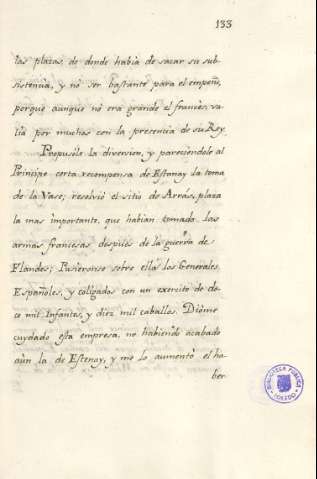 133
las plazas, de donde habia de sacar su sub-
sistencia, y no ser bastante para el empeño,
porque aunque no era grande el francés, va-
lia por muchos con la presencia de su Rey.
Propusole la diversion, y pareciendole al
Principe corta recompensa de Estenay la toma
de la Vase; resolvió el sitio de Arrás, plaza
la mas importante, que habian tomado las
armas francesas despues de la guerra de
Flandes; Pusieronse sobre ella los Generales
Españoles, y coligados con un exercito de do-
ce mil Infantes, y diez mil caballos. Dióme
cuydado esta empresa, no habiendo acabado
aùn la de Estenay, y me lo aumentó el ha-
ber
BIBLIOTECA PUBLICA
TOLEDO